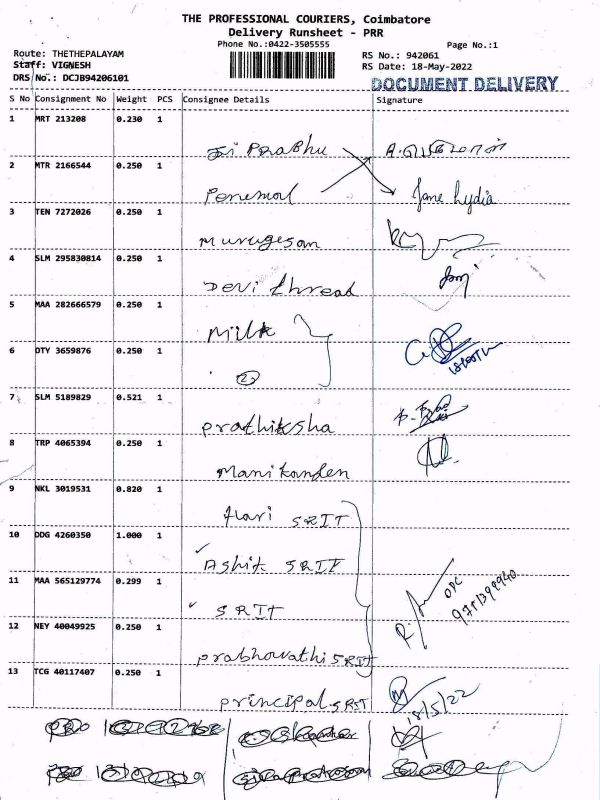 THE PROFESSIONAL COURIERS, Coimbatore
Delivery Runsheet - PRR
Phone No.:0422-3505555
Page No.:1
Route: THETHEPALAYAM
RS No.: 942061
Staff: VIGNESH
RS Date: 18-May-2022
DRS No.: DCJB94206101
DOCUMENT DELIVERY
S No Consignment No Weight PCS Consignee Details Signature
1 MRT 213208 0.230 1
Sri Prabhu
2 MTR 2166544 0.250 1
Perumal Jane Lydia
3 TEN 7272026 0.250 1
Murugesan
4 SLM 295830814 0.250 1
Devi thread
5 MAA 282666579 0.250 1
Milk
6 OTY 3659876 0.250 1
2
7 SLM 5189829 0.521 1
prathiksha
8 TRP 4065394 0.250 1
Manikanden
9 NKL 3019531 0.820 1
Hari SRIT
10 DDG 4260350 1.000 1
Ashik SRIT
11 MAA 565129774 0.299 1
SRIT
12 NEY 40049925 0.250 1
prabhavathi SRIT
13 TCG 40117407 0.250 1
principal SRIT 18/5/22